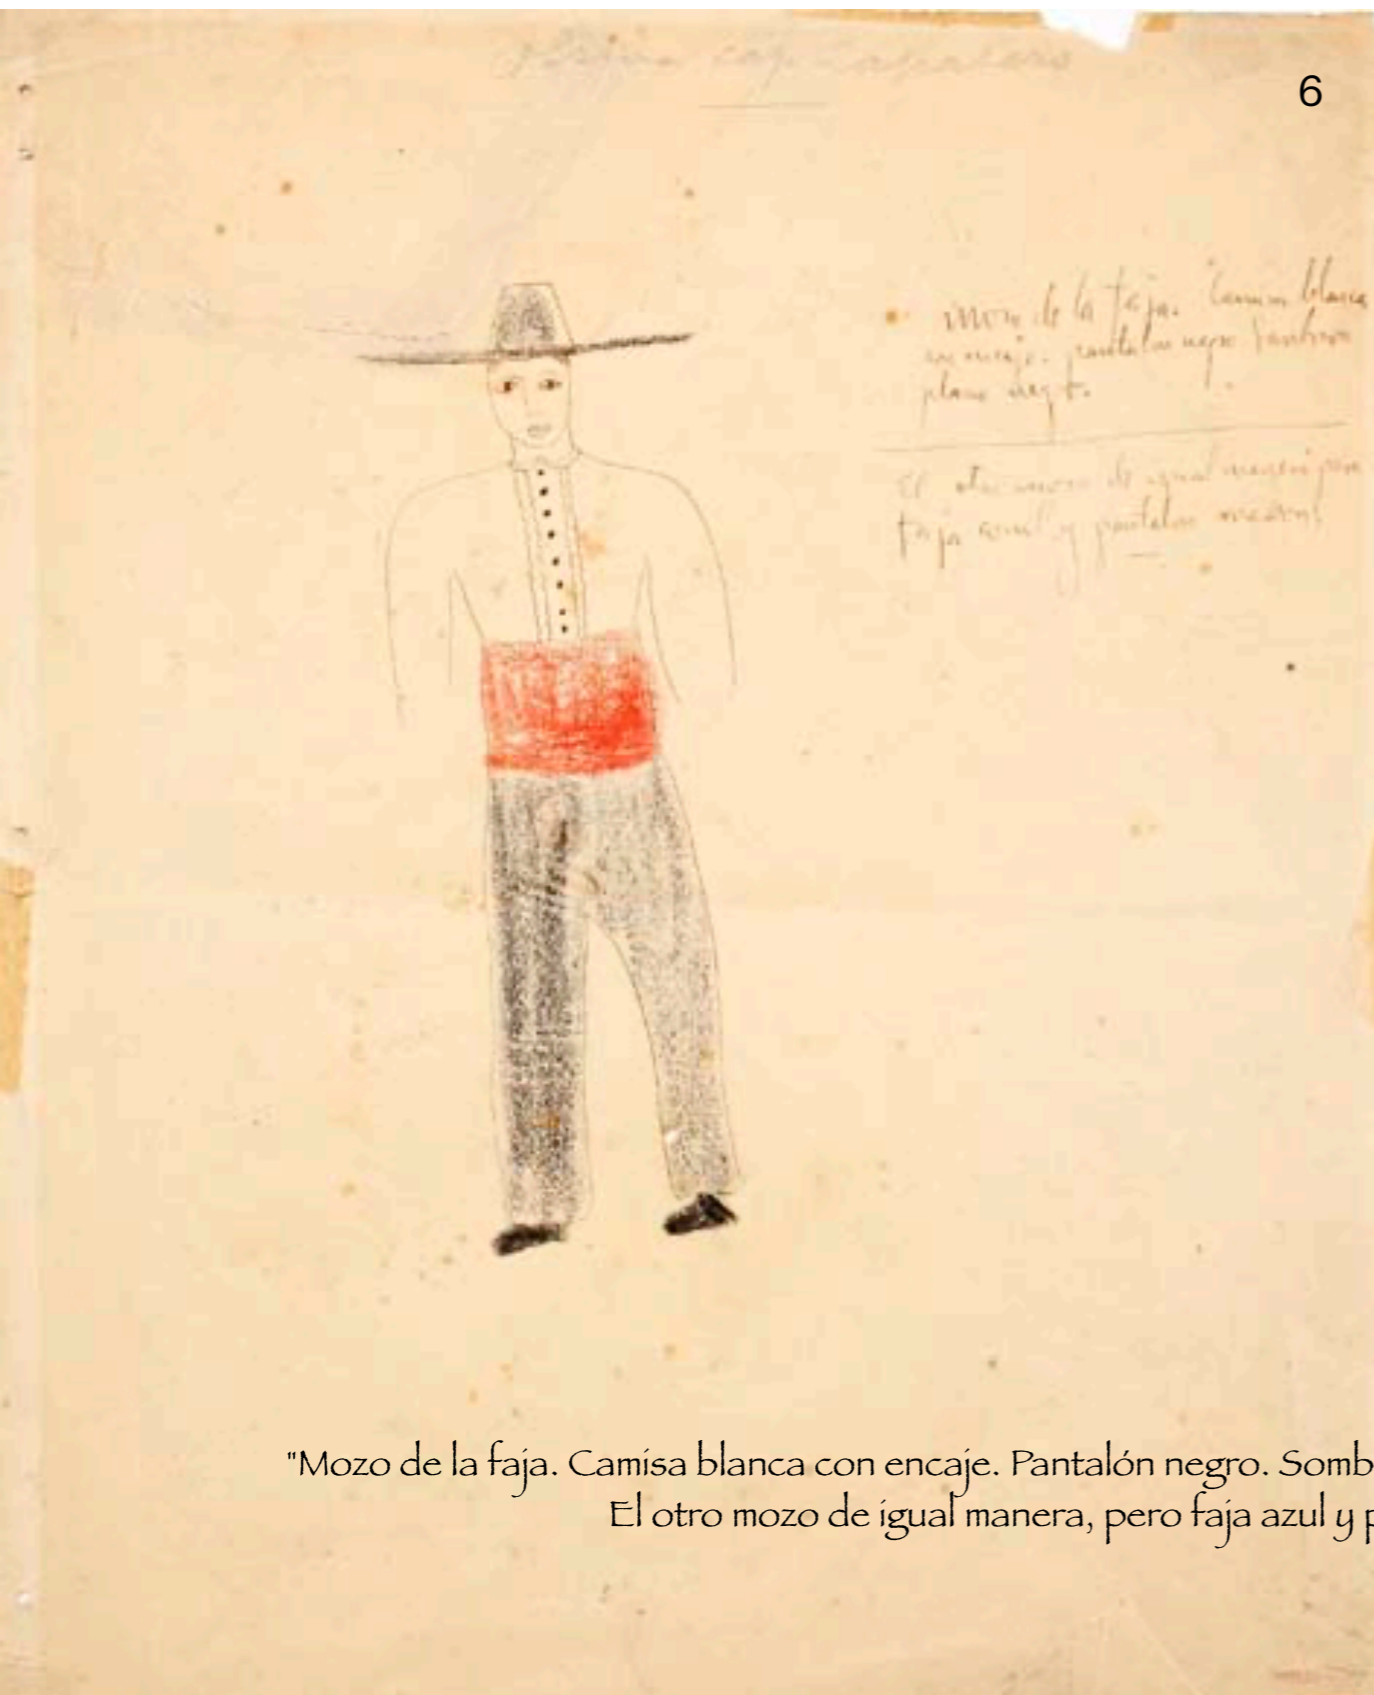 6
Mozo de la faja. Camisa blanca
con encaje. pantalon negro Sombrero
plano negro.
El otro mozo de igual manera pero
faja azul y pantalon
"Mozo de la faja. Camisa blanca con encaje. Pantalón negro. Somb
El otro mozo de igual manera, pero faja azul y p